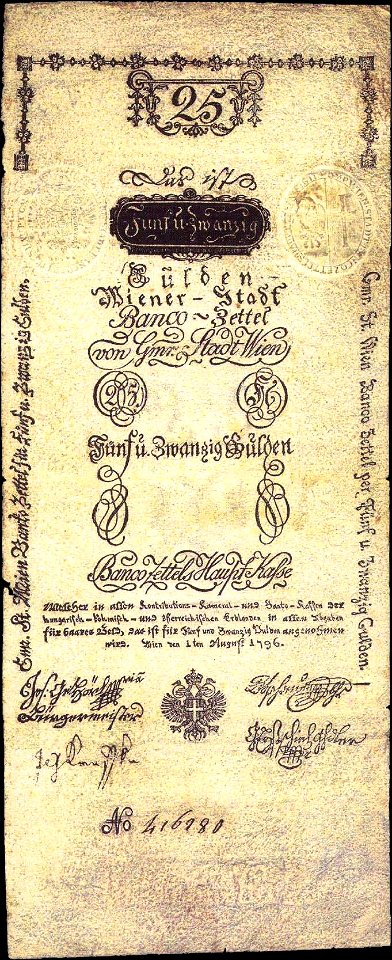 25
Das ist
Fünf u. Zwanzig
Gülden
Wiener-Stadt
Banco-Zettel
von Gmr: Stadt Wien
25
Fünf u. Zwanzig Gülden
Banco Zettels Haupt-Kasse
Welcher in allen Kontributions- Kameral- und Banko-Kassen der
hungarisch-böhmisch- und österreichischen Erblanden in allen Abgaben
für baares Geld, das ist für Fünf und Zwanzig Gulden angenohmen
wird. Wien den 1ten August 1796.
Bürgermeister
No 416280
Gmr. St. Wien Banko Zettel für Fünf u. Zwanzig Gulden.
Gmr. St. Wien Banco Zettel per Fünf u. Zwanzig Gulden